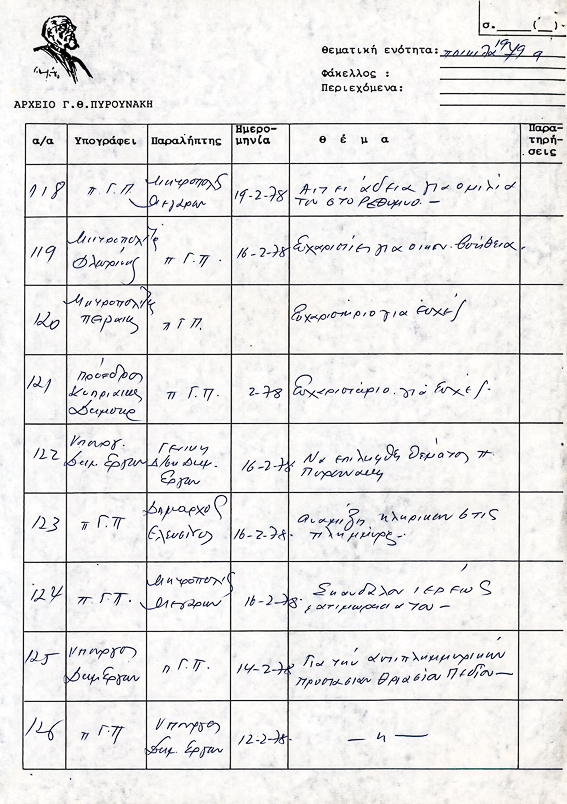 σ.____(__)
θεματική ενότητα: ποικίλα 1979
φάκελλος :
Περιεχόμενα:
ΑΡΧΕΙΟ Γ.Θ.ΠΥΡΟΥΝΑΚΗ
α/α Υπογράφει Παραλήπτης Ημερο-μηνία θ έ μ α Παρα-τηρή-σεις
118 π Γ.Π Μητροπολ Μεγάρων 19-2-78 Αιτεί άδεια για ομιλία
του στο Ρέθυμνο.—
119 Μητροπολίτης Φλωρίνης π Γ.Π. 16-2-78 Ευχαριστίες για οικον. βοήθεια.
120 Μητροπολίτης Πειραιώς π Γ.Π. Ευχαριστήριο για ευχές
121 Πρόεδρος Κυπριακής Δημοκρ. π Γ.Π. 2-78 Ευχαριστήριο. για Ευχές.
122 Υπουργ. Δημ. Έργων Γενικη Δ/ση Δημ. Έργων 16-2-78 Να επιληφθή θέματος π.
Πυρουνάκη
123 π Γ.Π Δήμαρχος Ελευσίνος 16-2-78. αναμίξη κληρικών στις
πλημμύρες.
124 π. Γ.Π. Μητροπολίτης Μεγάρων 16-2-78. Σκάνδαλον ιερέως
ατιμωρησία του —
125 Υπουργός Δημ Έργων π Γ.Π. 14-2-78 Για την αντιπλημμυρικήν
προστασίαν Θριασίου Πεδίου—
126 π Γ.Π Υπουργος Δημ. Έργων 12-2-78. — " —